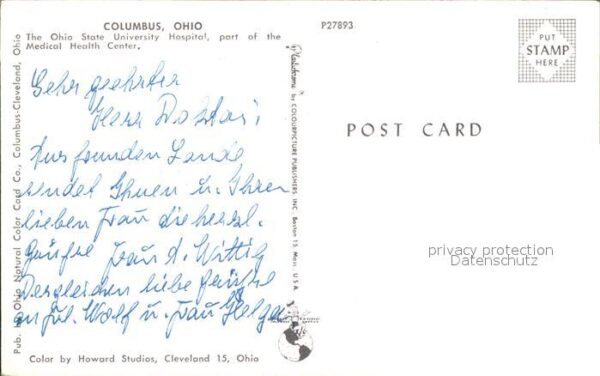 COLUMBUS, OHIO
The Ohio State University Hospital, part of the
Medical Health Center.
P27893
PUT
STAMP
HERE
POST CARD
Sehr geehrter
Herr
Aus fremden Lande
sendet Ihnen u. Ihrer
lieben Frau die herzl.
Grüße Frau A. Wittig
Dergleichen liebe Grüße
an Frl. Wolf u. Frau Helga
Pub. by Ohio Natural Color Card Co., Columbus-Cleveland, Ohio
Plastichrome by COLOURPICTURE PUBLISHERS INC. Boston 15, Mass. U.S.A.
privacy protection
Datenschutz
Color by Howard Studios, Cleveland 15, Ohio